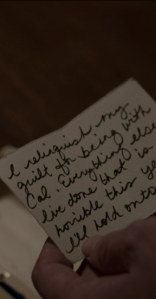 I relinquish any
guilt for being with
Cal. Everything else
I've done that is
horrible this ye
I'll hold onto